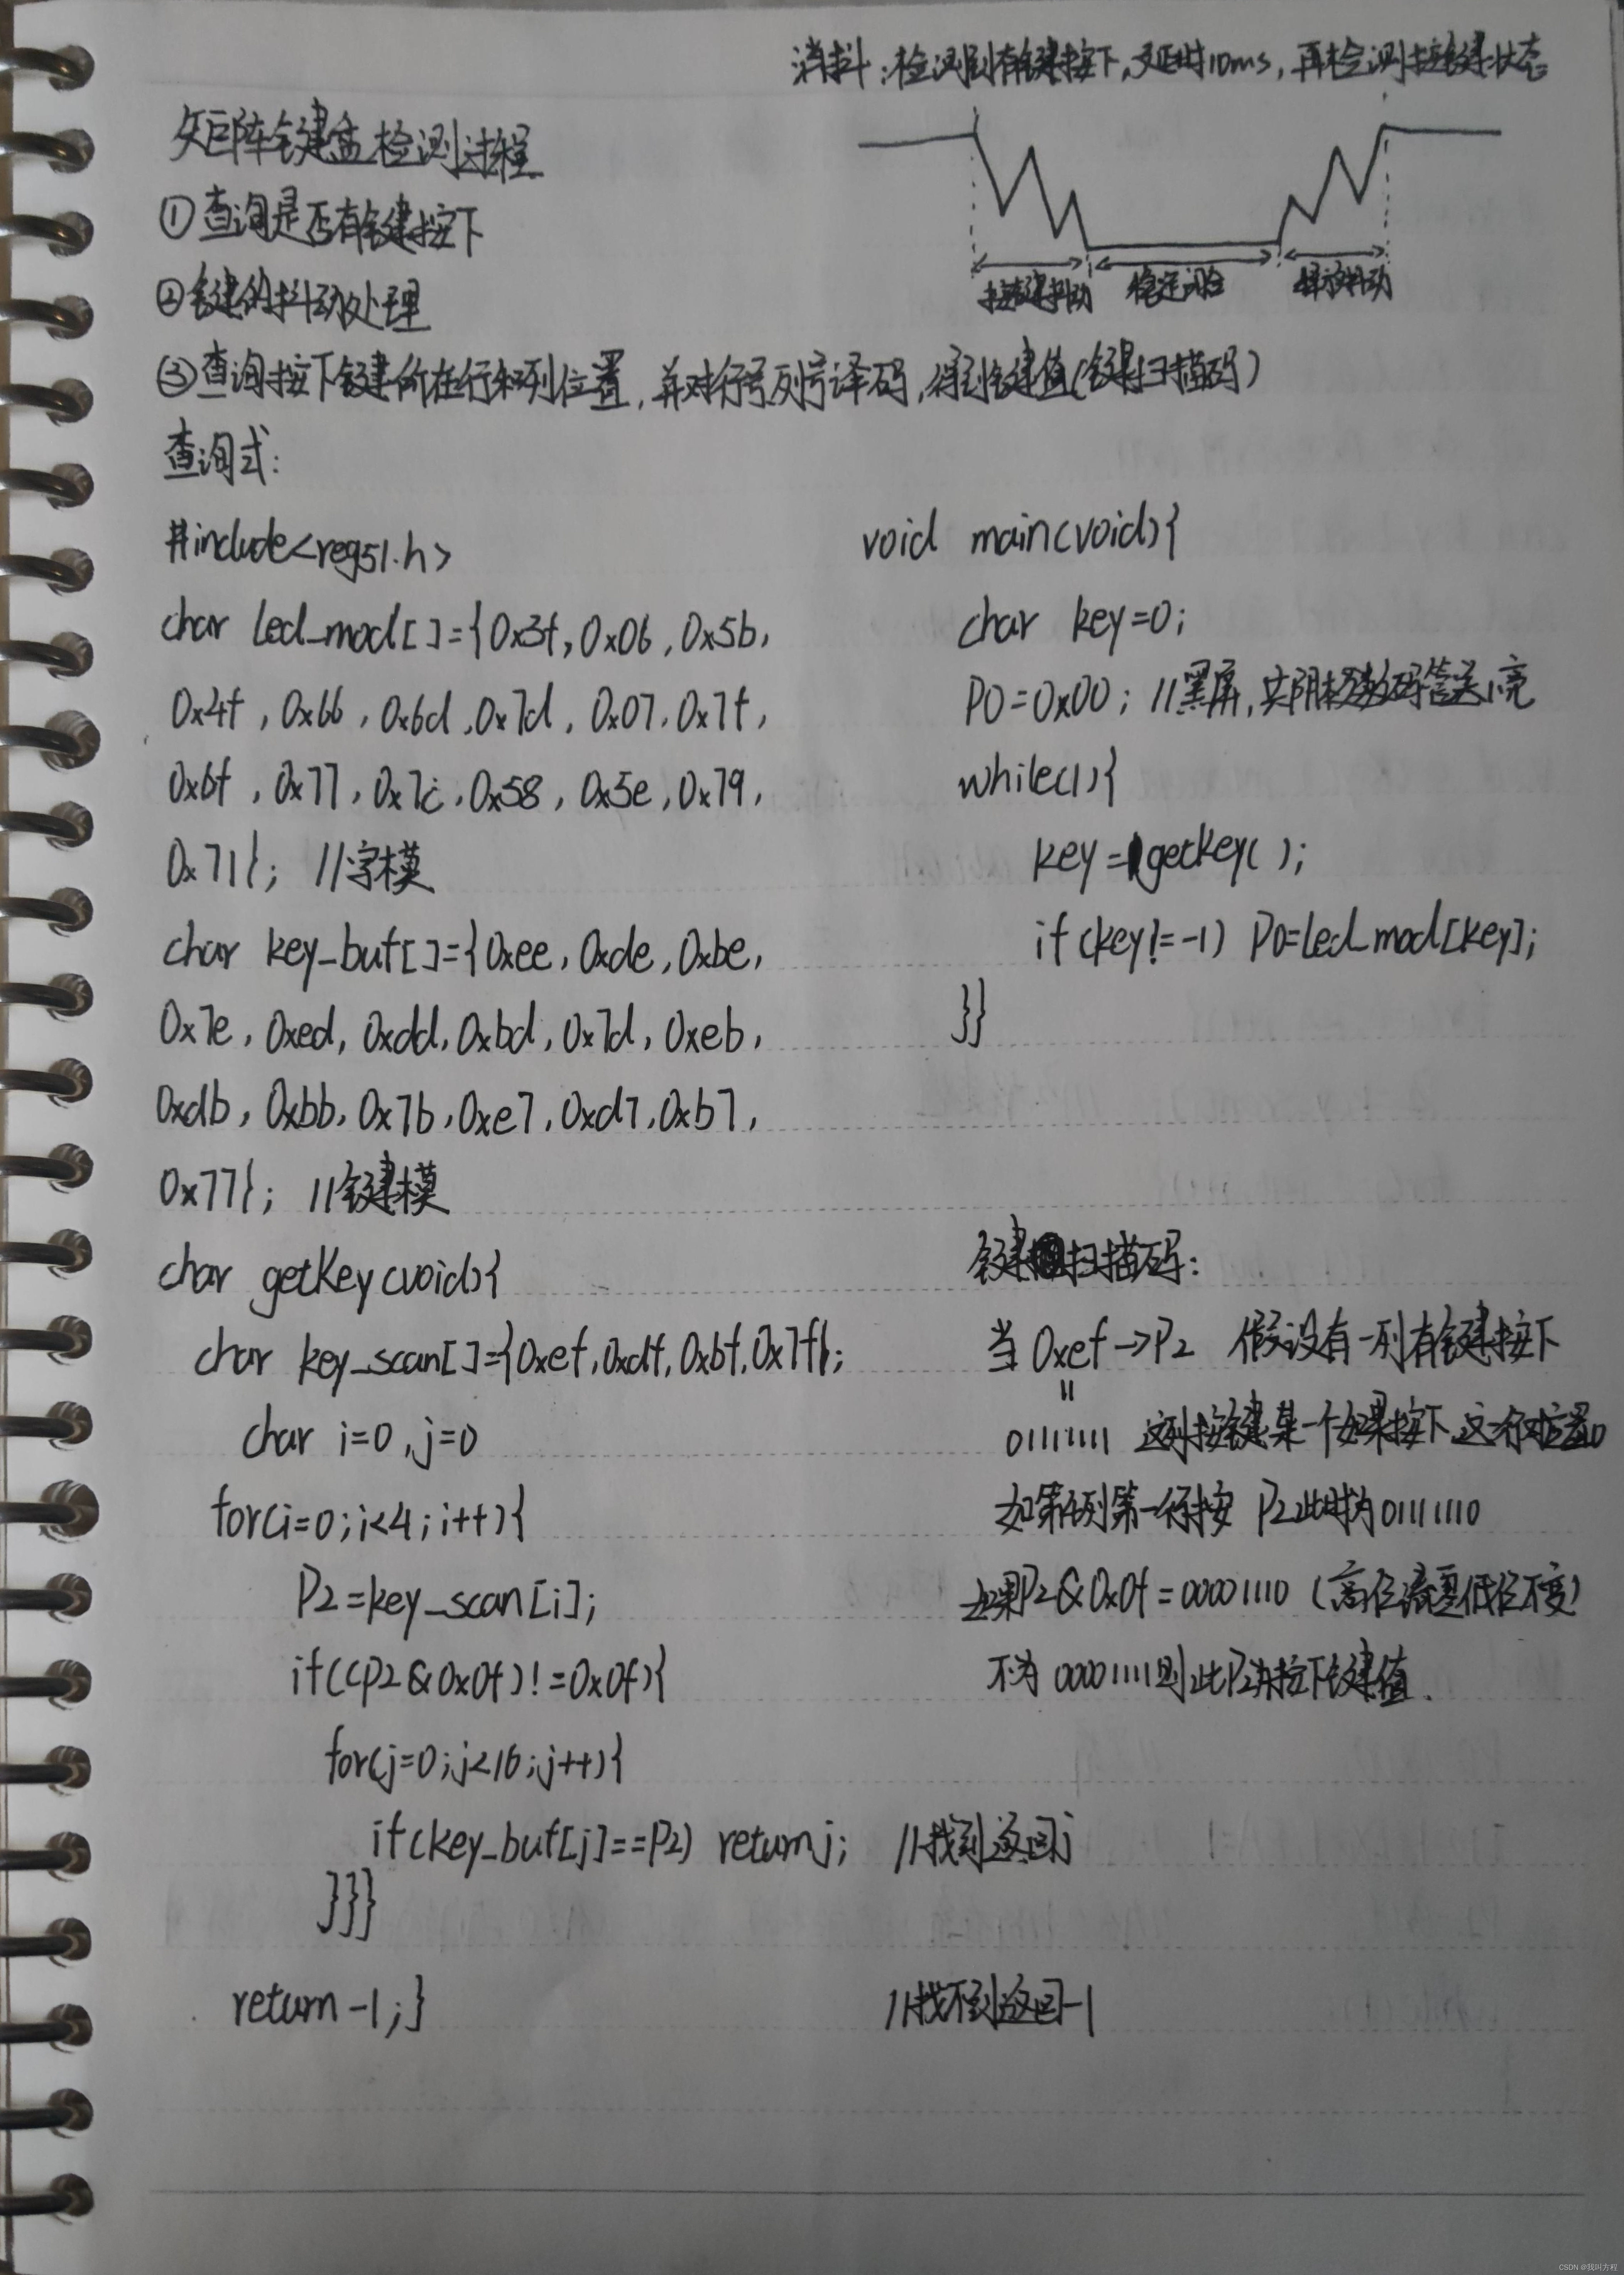 消抖:检测到有键按下,延时10ms,再检测按键状态
矩阵键盘检测过程
①查询是否有键按下
②键的抖动处理
按键抖动 稳定闭合 释放抖动
③查询按下键所在行和列位置,并对行号列号译码,得到键值(键扫描码)
查询式:
#include<reg51.h>
char led_mod[]={0x3f,0x06,0x5b,
0x4f,0x66,0x6d,0x7d,0x07,0x7f,
0x6f,0x77,0x7c,0x58,0x5e,0x79,
0x71}; //字模
char key_buf[]={0xee,0xde,0xbe,
0x7e,0xed,0xdd,0xbd,0x7d,0xeb,
0xdb,0xbb,0x7b,0xe7,0xd7,0xb7,
0x77}; //键模
char getKey(void){
char key_scan[]={0xef,0xdf,0xbf,0x7f};
char i=0,j=0
for(i=0;i<4;i++){
P2=key_scan[i];
if((P2&0x0f)!=0x0f){
for(j=0;j<16;j++){
if(key_buf[j]==P2) return j; //找到返回j
}}}
return -1;} //找不到返回-1
void main(void){
char key=0;
P0=0x00; //黑屏,共阴极数码管送1亮
while(1){
key=getKey();
if(key!=-1) P0=led_mod[key];
}}
键扫描码:
当0xef→P2 假设有一列有键按下
=
01111111 这列按键某一个如果按下这一行对应置0
如第4列第一行按 P2此时为01111110
如果P2&0x0f=00001110 (高位清零低位不变)
不为00001111则此P2为按下键值.
CSDN @我叫方程